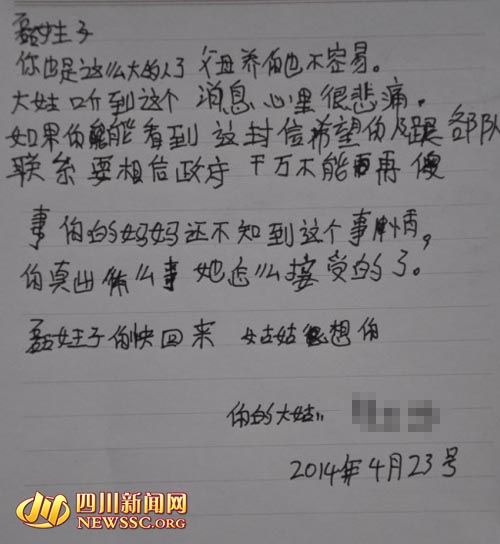 磊姪子
你也是这么大的人了 父母养你也不容易。
大姑听到这个 消息心里很悲痛,
如果你能看到 这封信希望你 跟部队
联系 要相信政府 千万不能再傻
事 你的妈妈还不知到这个事情,
你真出什么事 她怎么接受的了。
磊姪子你快回来 姑姑很想你
你的大姑:
2014年4月23号
四川新闻网
NEWSSC.ORG